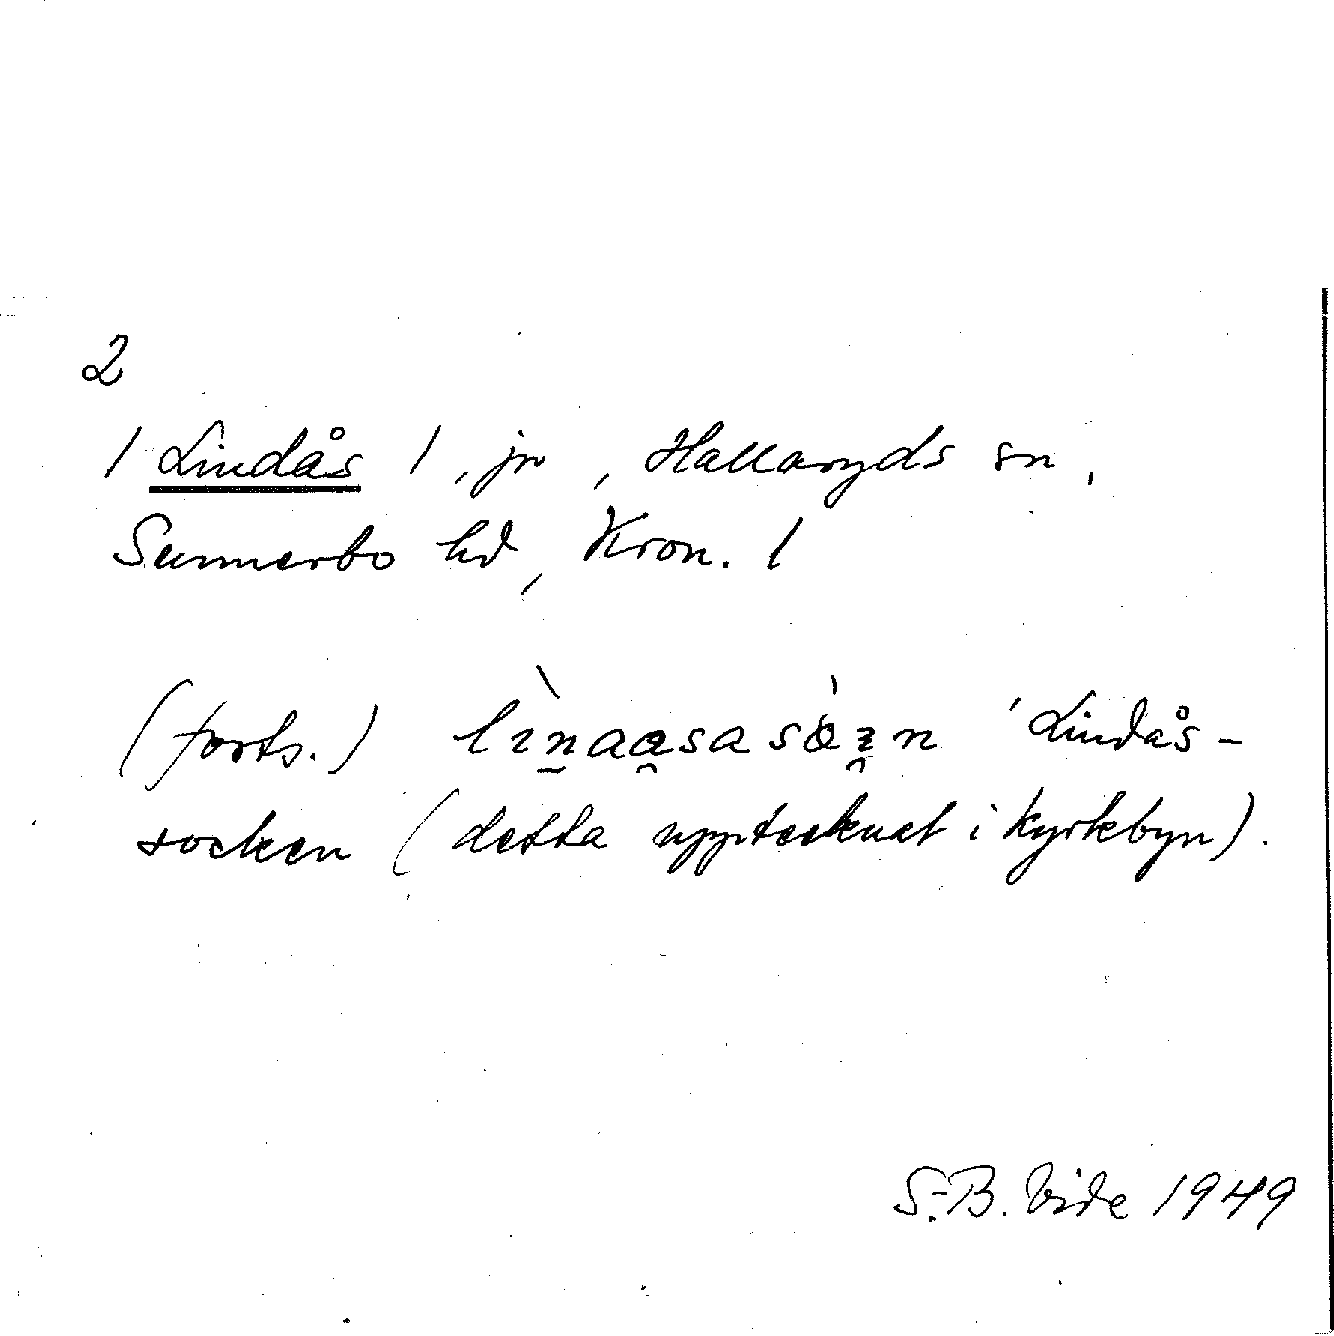 2
/ Lindås /, jr, Hallaryds sn,
Sunnerbo hd, Kron. /
(forts.) 'Lindås-
socken (detta upptecknat i kyrkbyn).
S.-B. Vide 1949